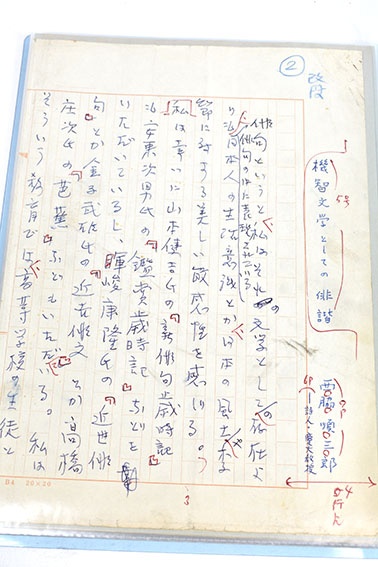 ②
改段
機智文学としての俳諧
5号
西脇順三郎
詩人・慶大教授
俳句というと、私はそれの文学としての存在よ
り
日本人の生活意識とか日本の風土や季
節に対する美しい敏感性を感ずる。
私は幸いに山本健吉氏の『新俳句歳時記』
安東次男氏の『鑑賞歳時記』などを
いただいているし、暉峻康隆氏の『近世俳
句』とか金子武雄氏の『近世俳文』とか高橋
庄次氏の『芭蕉』などもいただいている。私は
そういう教育では高等学校の生徒と
3
20×20